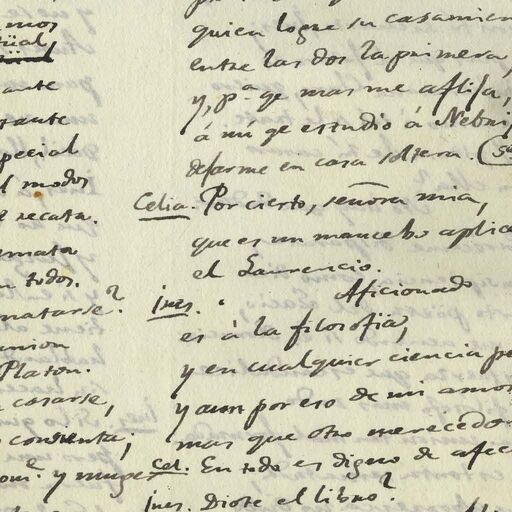 mos
üial,
ante
tante
special
l modos
e recata.
emata
n todos.
matarse?
union
Platon.
a casarse,
o consienta;
om.e y muger
quien logre su casamien
entre las dos la primera,
y, p.a qe mas me aflija,
á mi qe estudio á Nebri
dejarme en casa soltera. (
Celia. Por cierto, señora mia,
que es un mancebo aplica
el Laurencio.
Ines. Aficionado
es á la filosofia,
y en cualquier ciencia pe
y aun por eso de mi amor
mas que otro merecedor
Cel. En todo es digno de afec
Ines. Diote el libro?